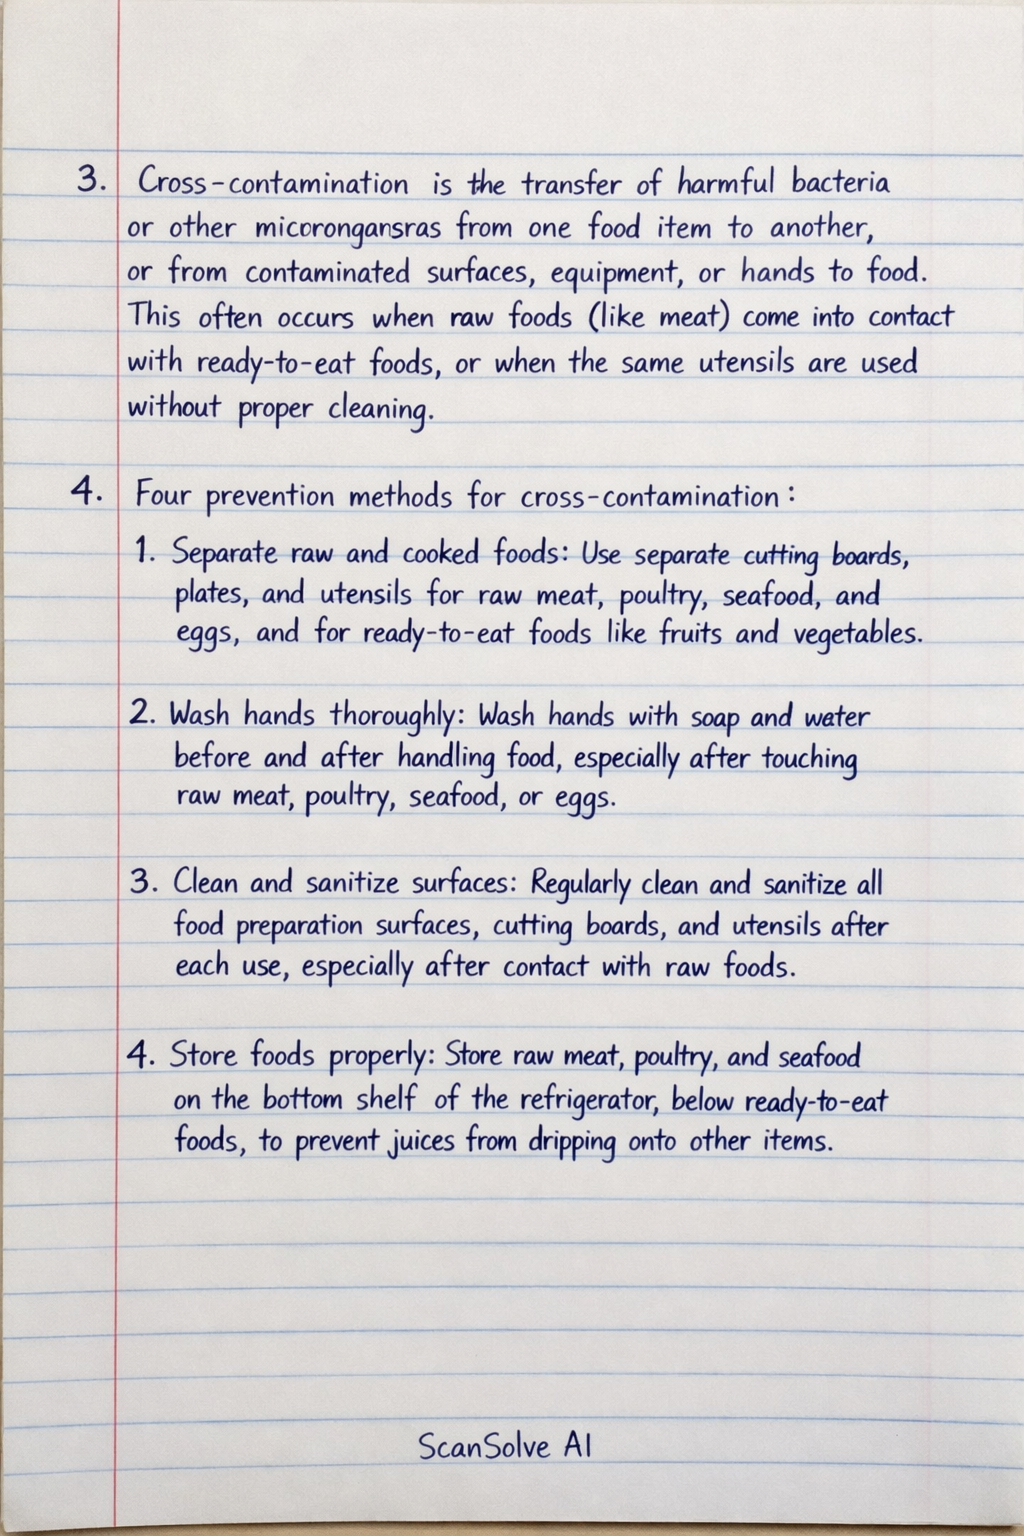 3. Cross-contamination is the transfer of harmful bacteria
or other micorongansras from one food item to another,
or from contaminated surfaces, equipment, or hands to food.
This often occurs when raw foods (like meat) come into contact
with ready-to-eat foods, or when the same utensils are used
without proper cleaning.
4. Four prevention methods for cross-contamination:
1. Separate raw and cooked foods: Use separate cutting boards,
plates, and utensils for raw meat, poultry, seafood, and
eggs, and for ready-to-eat foods like fruits and vegetables.
2. Wash hands thoroughly: Wash hands with soap and water
before and after handling food, especially after touching
raw meat, poultry, seafood, or eggs.
3. Clean and sanitize surfaces: Regularly clean and sanitize all
food preparation surfaces, cutting boards, and utensils after
each use, especially after contact with raw foods.
4. Store foods properly: Store raw meat, poultry, and seafood
on the bottom shelf of the refrigerator, below ready-to-eat
foods, to prevent juices from dripping onto other items.
ScanSolve AI